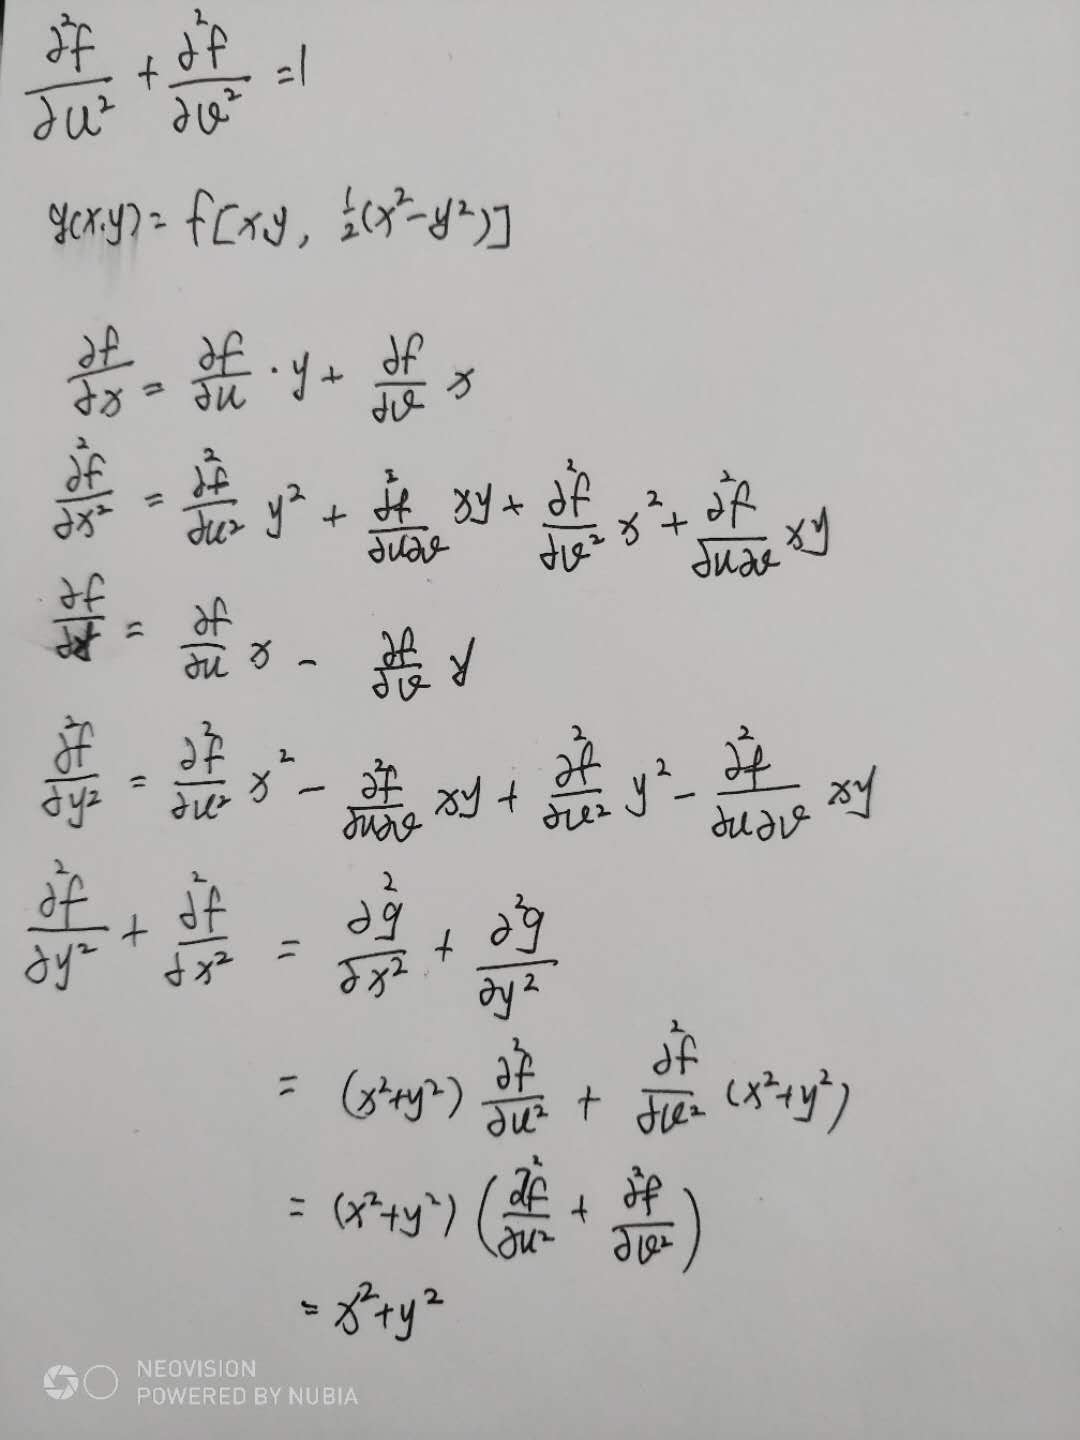 ∂²f/∂u² + ∂²f/∂v² = 1
g(x,y) = f[xy, ½(x²-y²)]
∂f/∂x = ∂f/∂u · y + ∂f/∂v x
∂²f/∂x² = ∂²f/∂u² y² + ∂²f/∂u∂v xy + ∂²f/∂v² x² + ∂²f/∂u∂v xy
∂f/∂y = ∂f/∂u x - ∂f/∂v y
∂²f/∂y² = ∂²f/∂u² x² - ∂²f/∂u∂v xy + ∂²f/∂v² y² - ∂²f/∂u∂v xy
∂²f/∂y² + ∂²f/∂x² = ∂²g/∂x² + ∂²g/∂y²
= (x²+y²) ∂²f/∂u² + ∂²f/∂v² (x²+y²)
= (x²+y²) (∂²f/∂u² + ∂²f/∂v²)
= x²+y²
NEOVISION
POWERED BY NUBIA